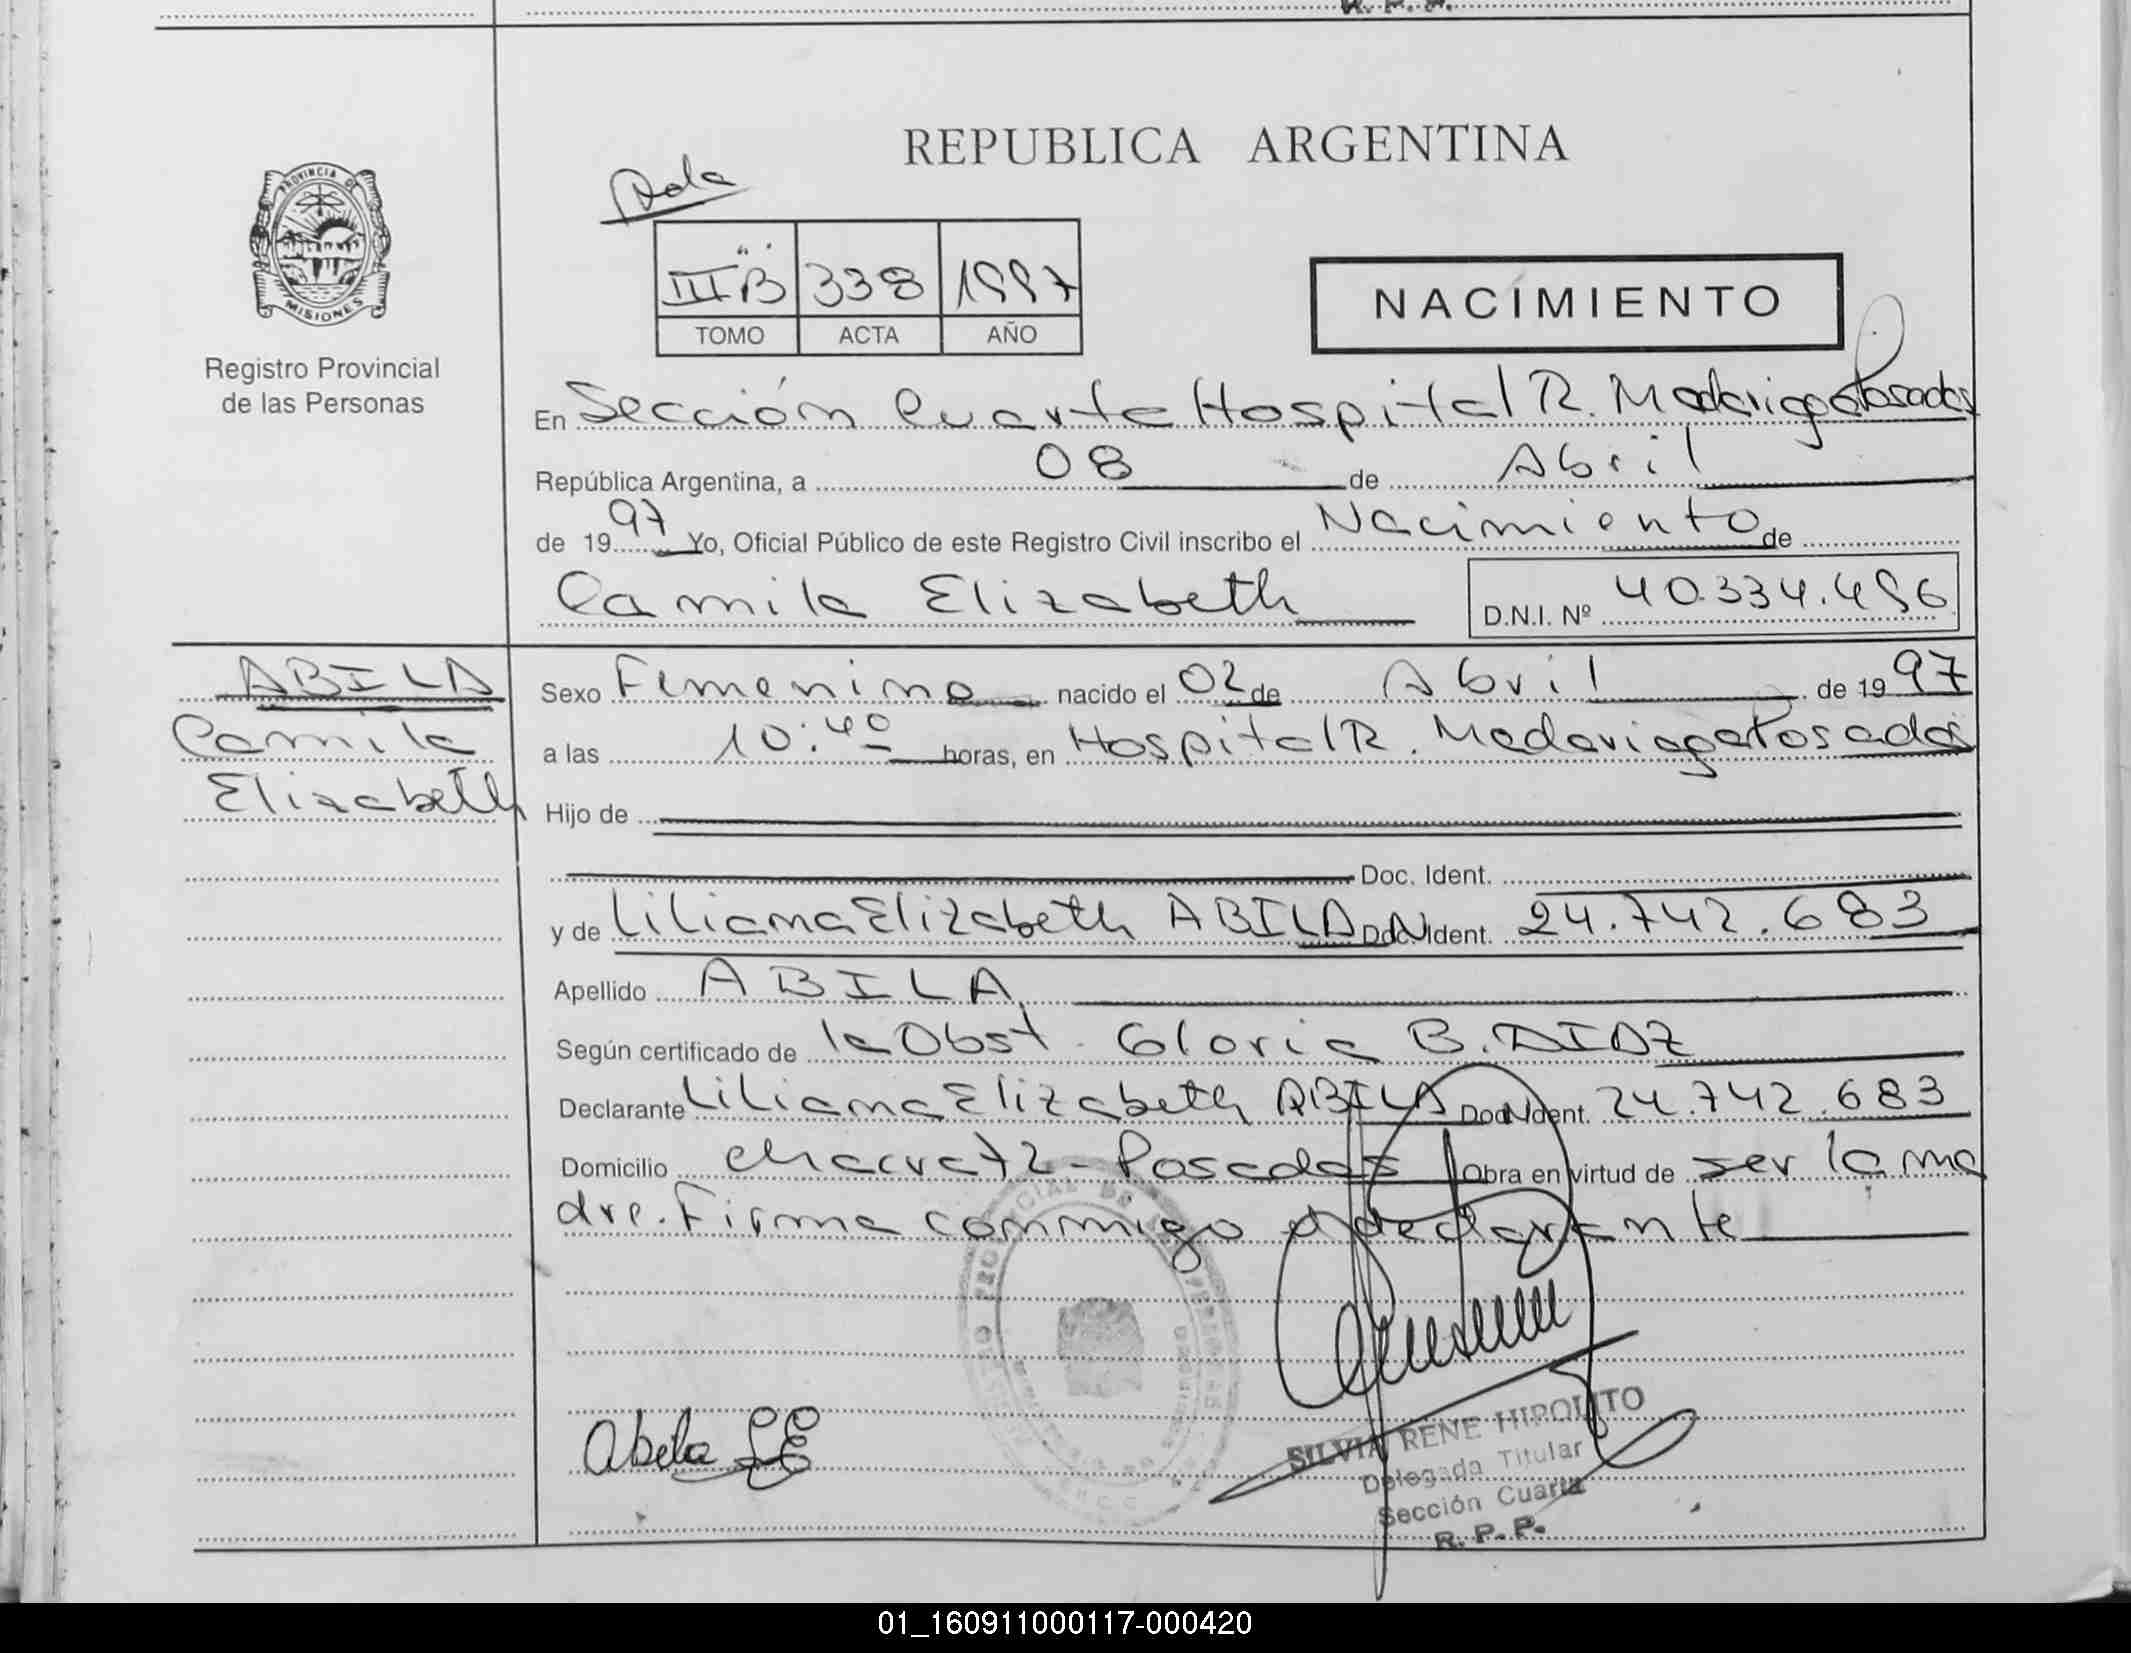 R. P. P.
REPUBLICA ARGENTINA
PROVINCIA DE
MISIONES
Registro Provincial
de las Personas
III "B" 338 1997
TOMO ACTA AÑO
NACIMIENTO
En Sección Cuarta Hospital R. Madariaga Posadas
República Argentina, a 08 de Abril
de 1997 Yo, Oficial Público de este Registro Civil inscribo el Nacimiento de
Camila Elizabeth D.N.I. Nº 40.334.496
ABILA
Camila
Elizabeth
Sexo Femenino nacido el 02 de Abril de 1997
a las 10:40 horas, en Hospital R. Madariaga Posadas
Hijo de
Doc. Ident.
y de Liliana Elizabeth ABILA Doc. Ident. 24.742.683
Apellido ABILA
Según certificado de la Obst. Gloria B. DIAZ
Declarante Liliana Elizabeth ABILA Doc. Ident. 24.742.683
Domicilio Chacra 72 - Posadas Obra en virtud de ser la ma
dre. Firma conmigo el declarante
Abila LE
SILVIA RENE HIPOLITO
Delegada Titular
Sección Cuarta
R. P. P.
01_160911000117-000420